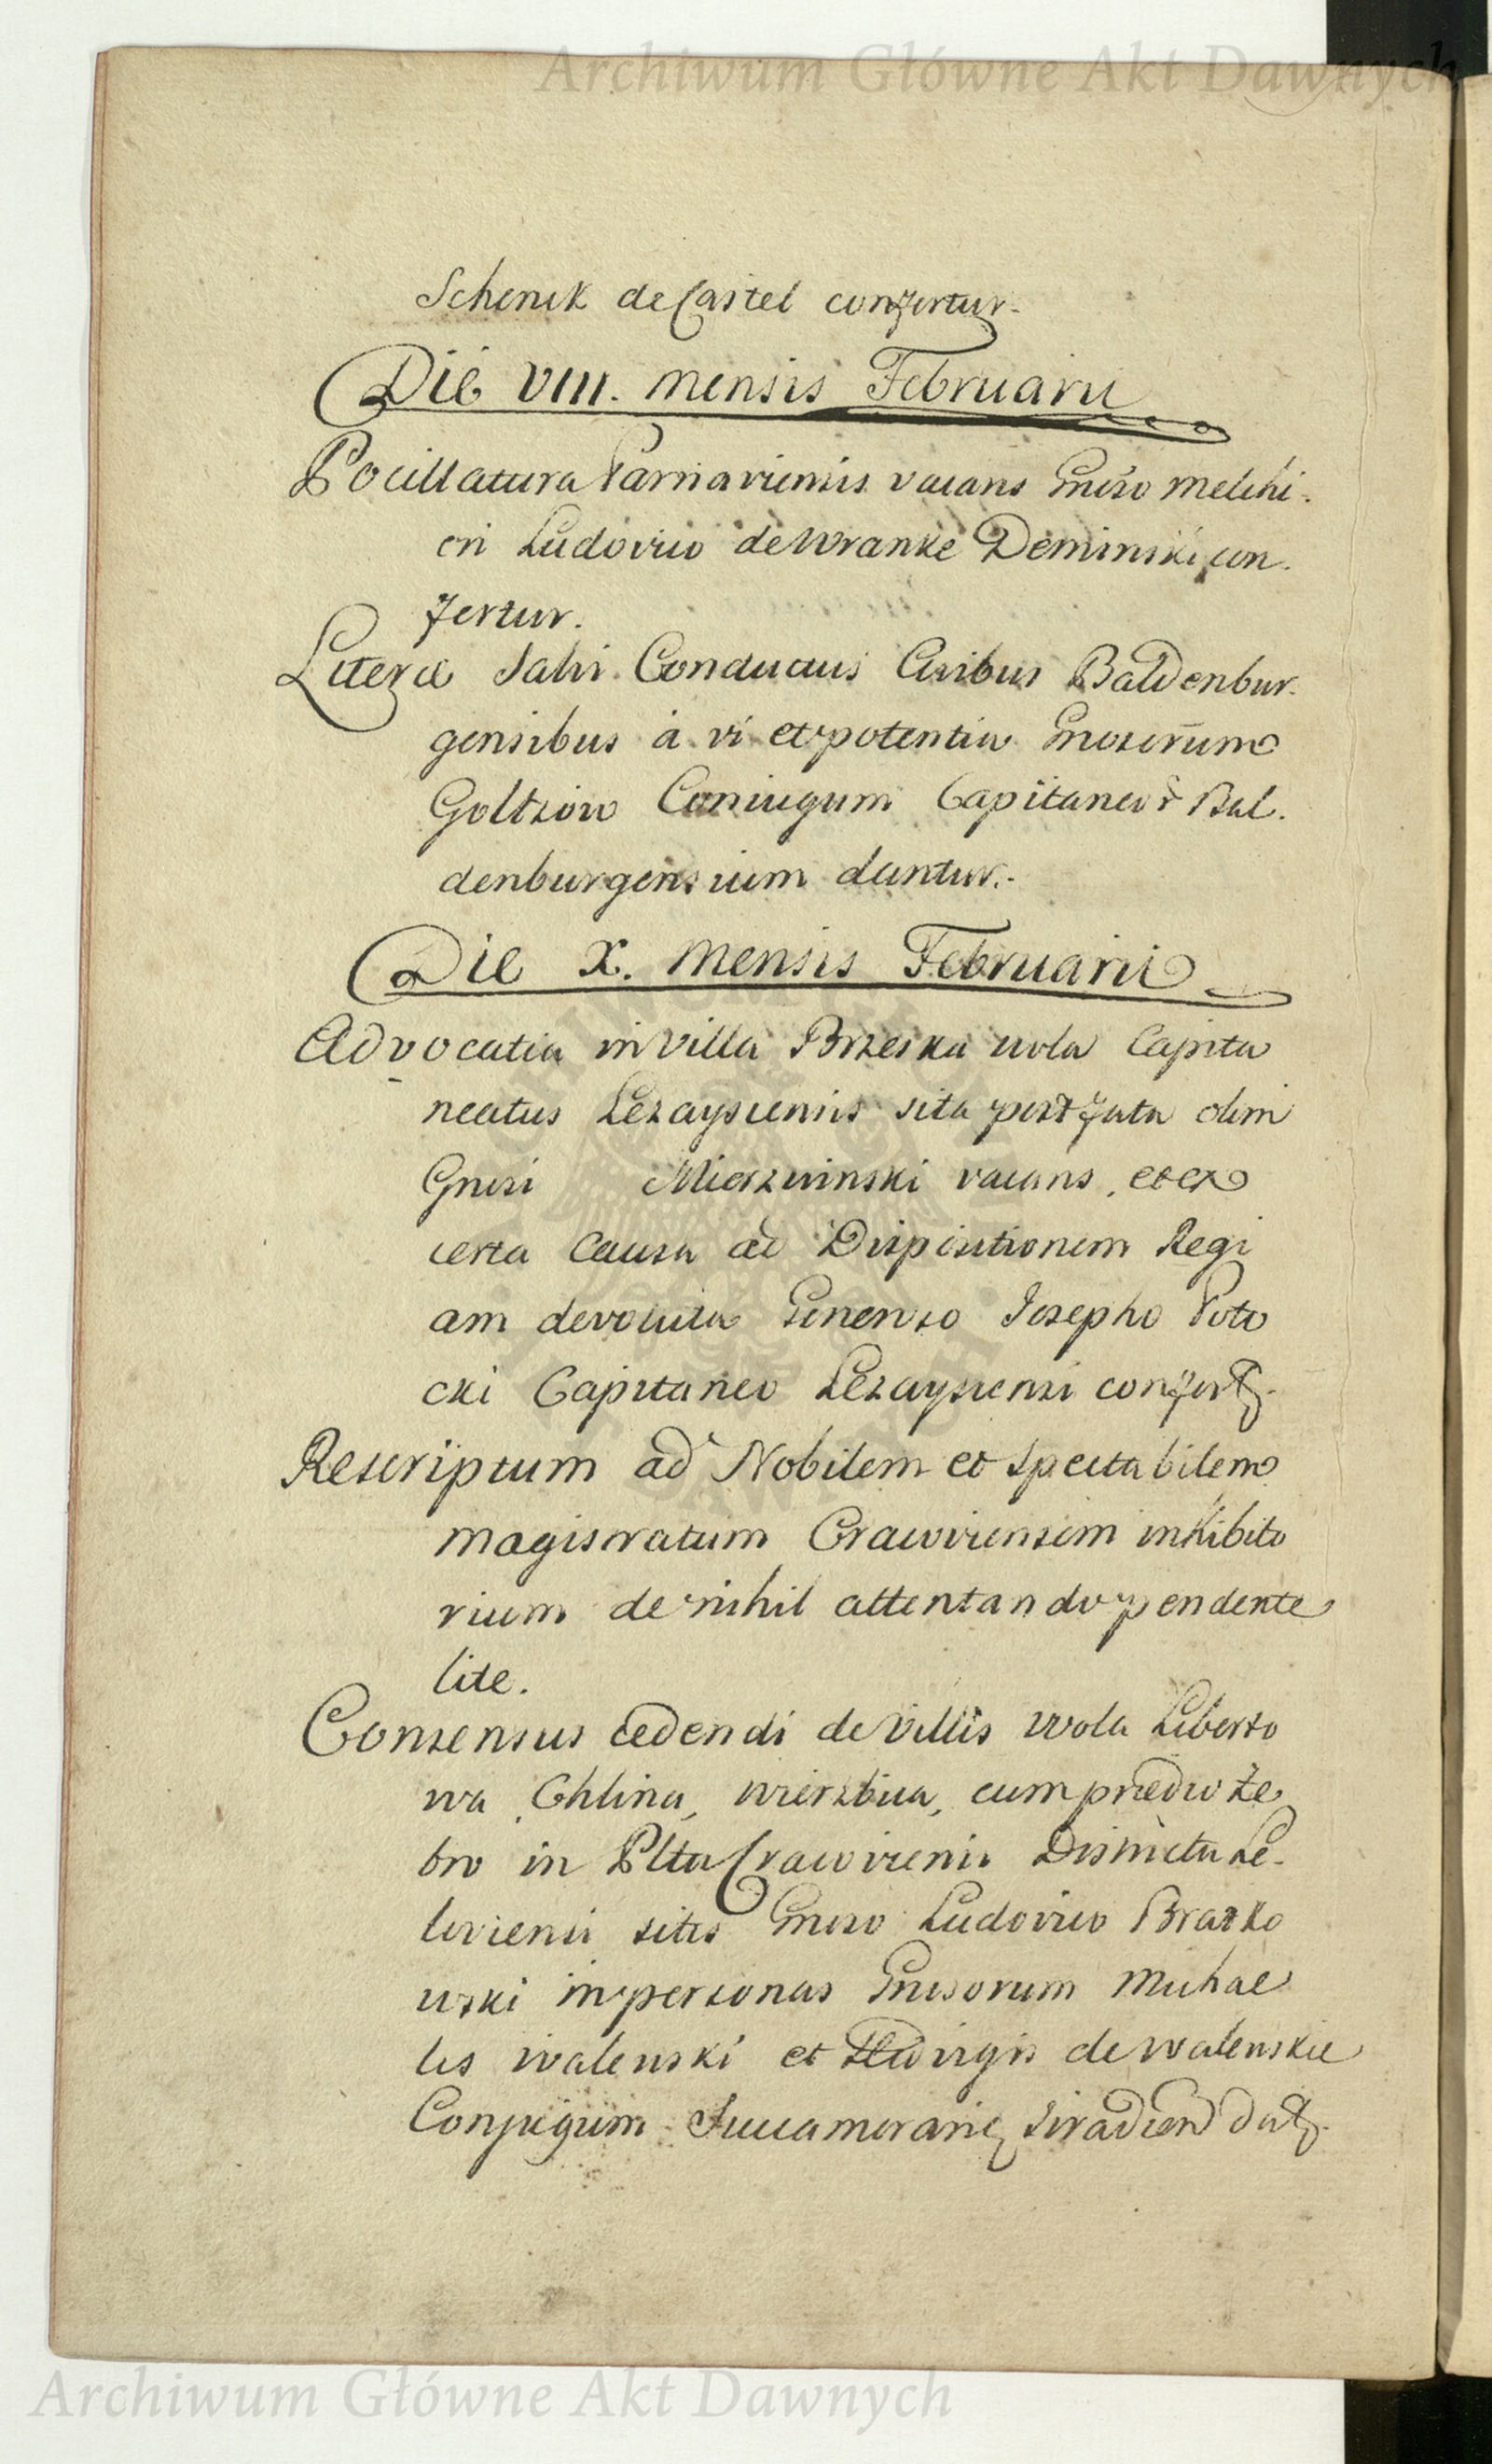 Archiwum Główne Akt Dawnych
Schenk de Castel confertur.
Die VIII. mensis Februarii
Pocillatura Parnaviensis vacans Gnoso Melchi-
ori Ludovico de Wranke Deminski con-
fertur.
Literæ Salvi Conductus Civibus Baldenbur-
gensibus à vi et potentia Gnosorum
Goltzow Coniugum Capitaneor Bal-
denburgensium dantur.
Die X. mensis Februarii
Advocatia in Villa Brzeska wola Capita
neatus Lezayscensis sita post fata olim
Gnosi Mierzwinski vacans, et ex
certa Causa ad Dispositionem Regi
am devoluta Gneroso Josepho Poto
cki Capitaneo Lezayscensi confertr.
Rescriptum ad Nobilem et Spectabilem
magistratum Cracoviensem inhibito
rium de nihil attentando pendente
lite.
Consensus cedendi de Villis Wola Liberto
wa, Chlina, Wierzbica, cum prædio Ze
bro in Pltu Cracoviensi Districtu Le-
loviensi sitis Gnoso Ludovico Brarko
wski in personas Gnosorum Michae
lis Walewski et Hedvigis de Walewskie
Conjugum Succamerarior Siradien datr.
Archiwum Główne Akt Dawnych